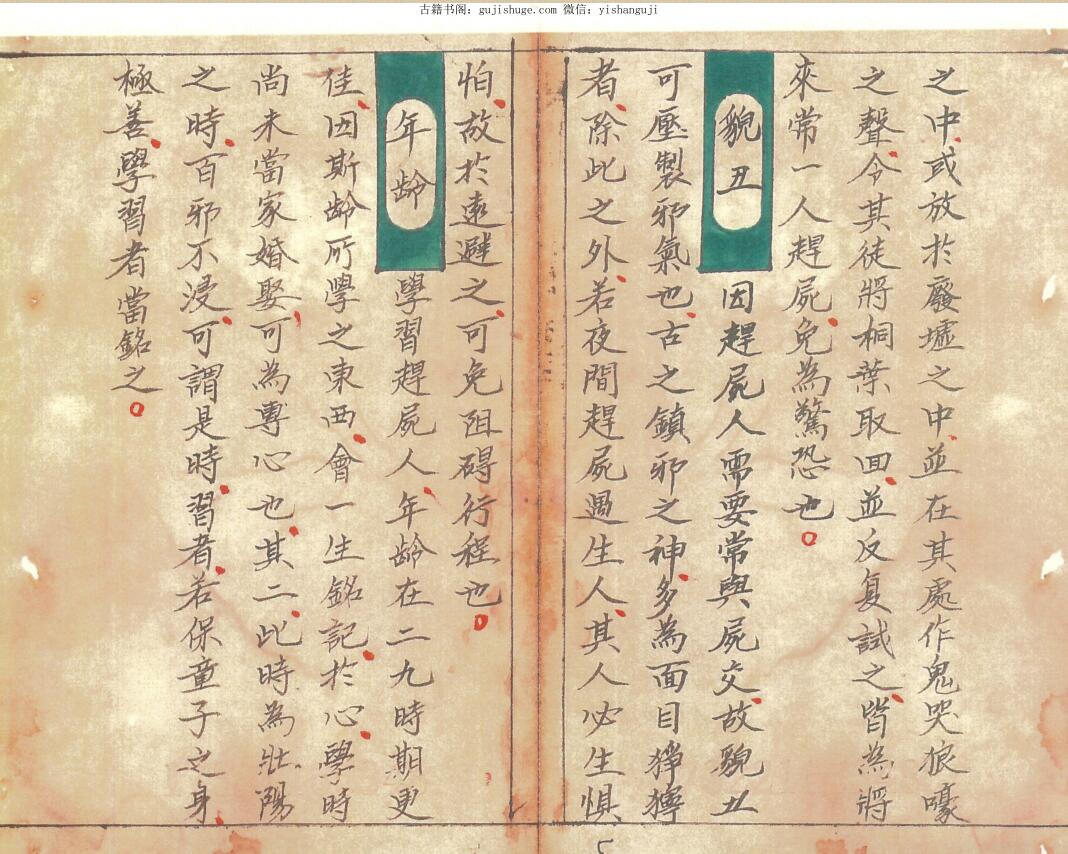 古籍书阁：gujishuge.com 微信：yishanguji
之中或放於廢墟之中並在其處作鬼哭狼嚎
之聲令其徒將桐葉取回並反复試之皆為將
來常一人趕屍免為驚恐也
貌丑
因趕屍人需要常與屍交故貌丑
可壓製邪氣也古之鎮邪之神多為面目猙獰
者除此之外若夜間趕屍遇生人其人必生惧
怕故於遠避之可免阻碍行程也
年龄
學習趕屍人年龄在二九時期更
佳因斯龄所學之東西會一生銘記於心學時
尚未當家婚娶可為專心也其二此時為壯陽
之時百邪不浸可謂是時習者若保童子之身
極善學習者當銘之